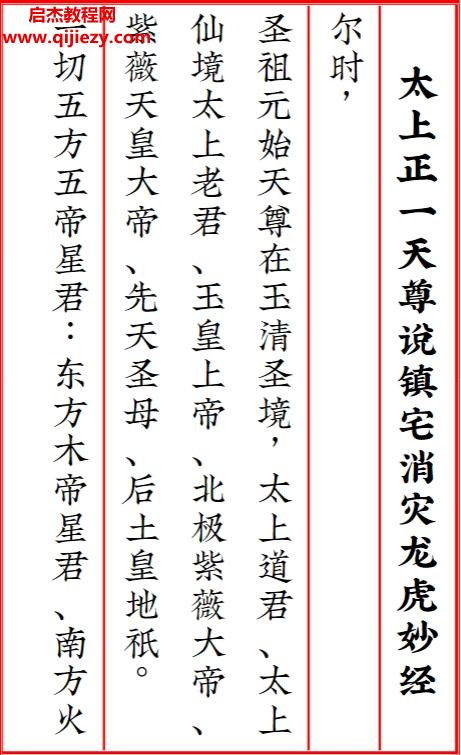 启杰教程网
www.qijiezy.com
太上正一天尊说镇宅消灾龙虎妙经
尔时，
圣祖元始天尊在玉清圣境，太上道君、太上
仙境太上老君、玉皇上帝、北极紫薇大帝、
紫薇天皇大帝、先天圣母、后土皇地祇。
一切五方五帝星君：东方木帝星君、南方火